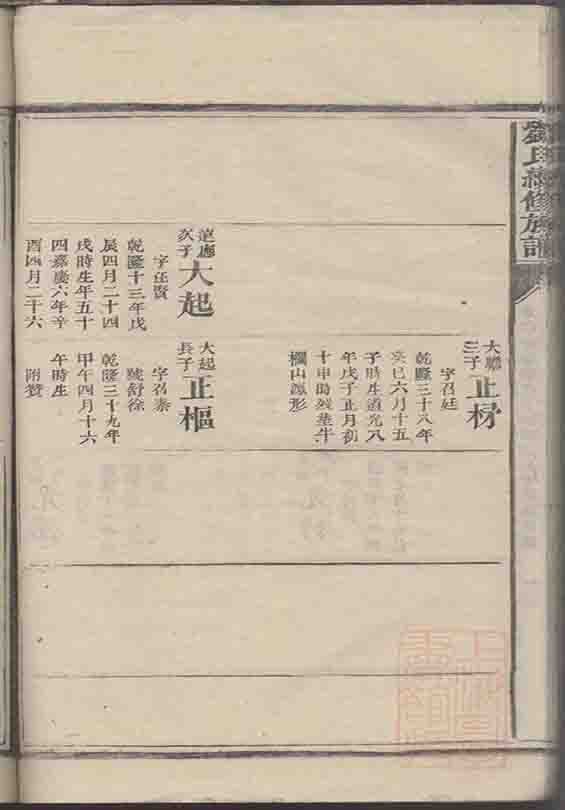 劉氏續修族譜
大聯
三子
正材
字召廷
乾隆三十八年
癸巳六月十五
子時生道光八
年戊子正月初
十申時殁塟牛
欄山㒵形
次子
大起
字任賢
乾隆十三年戊
辰四月二十四
戌時生年五十
四嘉慶六年辛
酉四月二十六
大起
長子
正樞
字召泰
號舒徐
乾隆三十九年
甲午四月十六
午時生
附贊